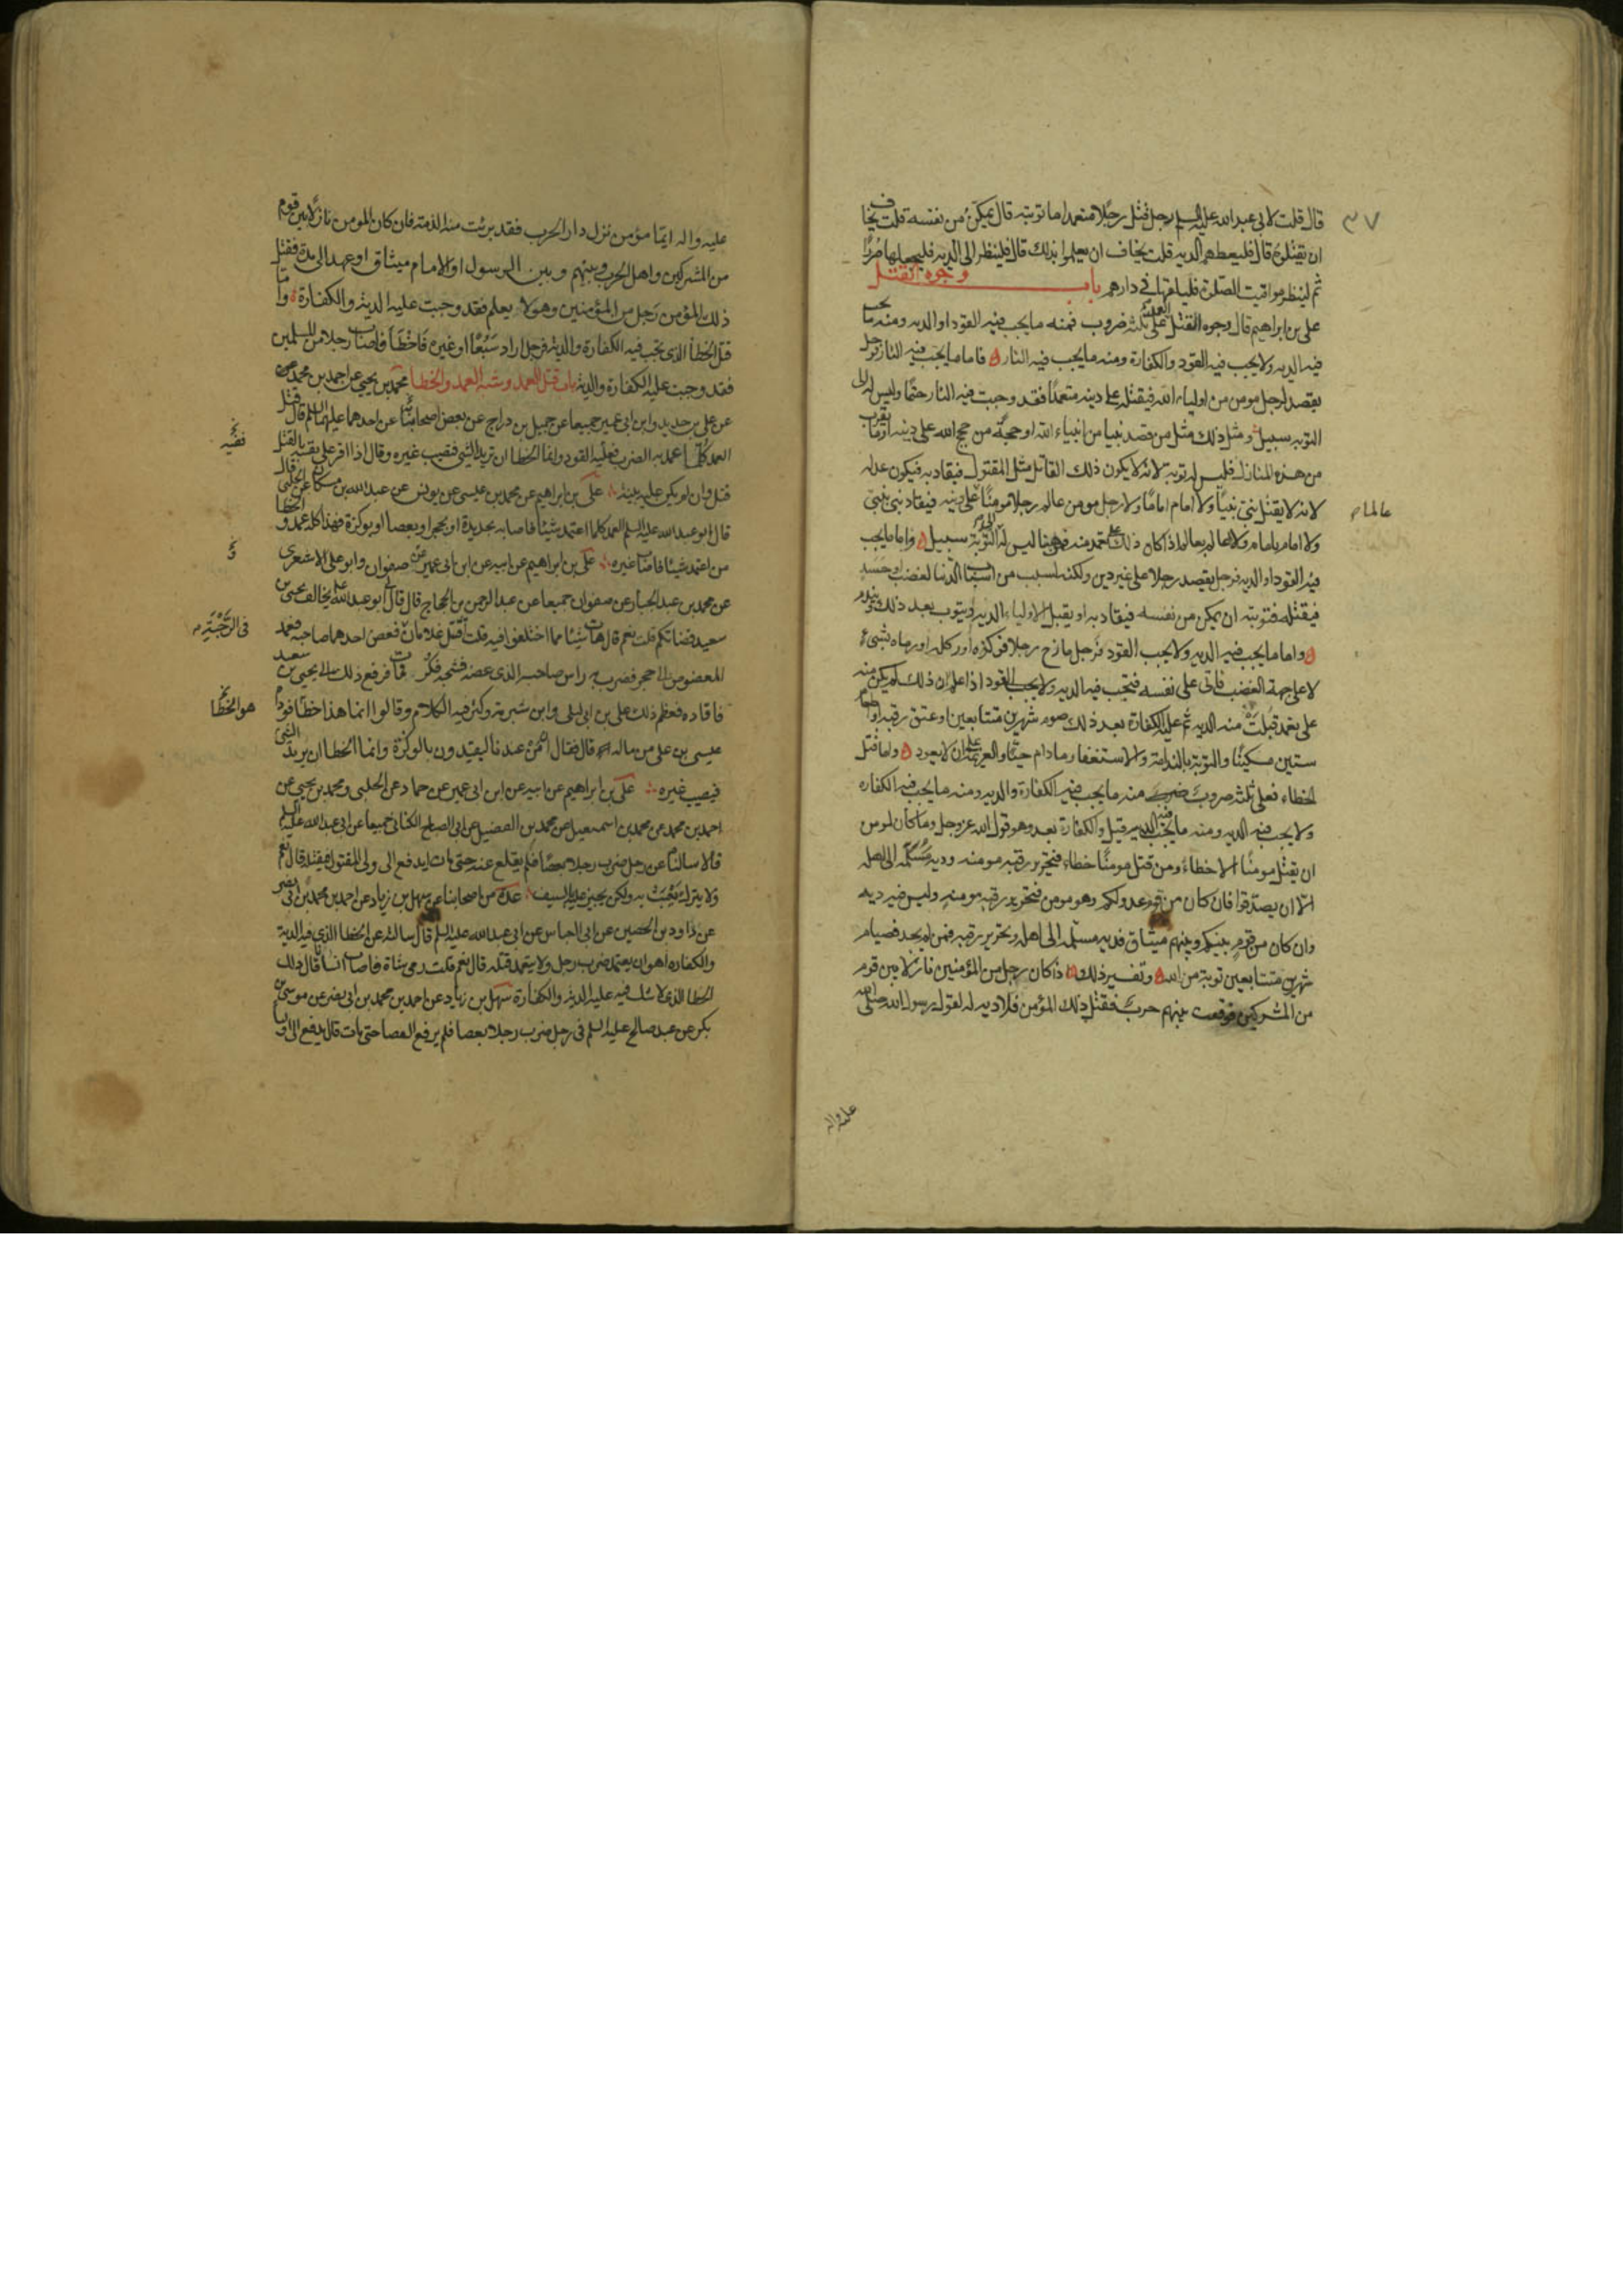 ٣٧
قال قلت لابى عبد الله عليه السلم رجل قتل رجلا متعمدا ما توبته قال يمكّن من نفسه قلت يخاف
ان يقتلوه قال فليعطهم الديه قلت يخاف ان يعلموا بذلك قال فلينظر الى الديه فليجعلها صُررًا
ثم لينظر مواقيت الصلوة فليلقها فى دارهم باب وجوه القتل
على بن ابراهيم قال وجوه القتل العمد على ثلثه ضروب فمنه ما يجب فيه القود او الديه ومنه ما يجب
فيه الديه ولا يجب فيه القود والكفارة ومنه ما يجب فيه النار فاما ما يجب فيه النار فرجل
يقصد لرجل مومن من اولياء الله فيقتله على دينه متعمدًا فقد وجبت فيه النار حتمًا وليس له الى
التوبه سبيل ومثل ذلك مثل من قصد نبيا من انبياء الله او حجة من حجج الله على دينه او ما يقرب
من هذه المنازل فليس له توبة لانه لا يكون ذلك القاتل مثل المقتول فيقاد به فيكون عدله
لانه لا يقتل نبى نبيًا ولا امام امامًا ولا رجل مومن عالم رجلا مومنًا على دينه فيقاد نبى بنبى
عالما
ولا امام بامام ولا عالم بعالم اذا كان ذلك على تعمد منه فمن هنا ليس له الى التوبة سبيل واما ما يجب
فيه القود او الديه فرجل يقصد رجلا على غير دين ولكنه لسبب من اسباب الدنيا لغضب او حسد
فيقتله فتوبته ان يمكن من نفسه فيقاد به او يقبل الاولياء الديه ويتوب بعد ذلك ويندم
واما ما يجب فيه الديه ولا يجب القود فرجل مازح رجلا فوكزه او ركله او رماه بشىء
لا على جهة الغضب فاتى على نفسه فتجب فيه الديه ولا يجب القود اذا علم ان ذلك لم يكن منه
على تعمد قبلت منه الديه ثم عليه الكفارة بعد ذلك صوم شهرين متتابعين او عتق رقبه او اطعام
ستين مسكينًا والتوبة بالندامة والاستغفار ما دام حيًّا والعزيمة على ان لا يعود واما قتل
الخطاء فعلى ثلثه ضروب منه ما يجب فيه الكفارة والديه ومنه ما يجب فيه الكفاره
ولا يجب فيه الديه ومنه ما يجب فيه الديه قبل والكفارة بعد وهو قول الله عز وجل وما كان لمومن
ان يقتل مومنًا الا خطاءً ومن قتل مومنًا خطاء فتحرير رقبه مومنه وديه مُسلّمه الى اهله
الا ان يصدقوا فان كان من قوم عدو لكم وهو مومن فتحرير رقبه مومنه وليس فيه ديه
وان كان من قوم بينكم وبينهم ميثاق فديه مسلّمه الى اهله وتحرير رقبه فمن لم يجد فصيام
شهرين متتابعين توبة من الله وتفسير ذلك اذا كان رجل من المؤمنين نازلا بين قوم
من المشركين فوقعت بينهم حرب فقتل ذلك المؤمن فلا ديه له لقول رسول الله صلى الله
عليه واله
عليه واله ايما مؤمن نزل دار الحرب فقد برئت منه الذمة فان كان المومن نازلا بين قوم
من المشركين واهل الحرب وبينهم وبين الرسول او الامام ميثاق او عهد الى مدة فقتل
ذلك المؤمن رجل من المؤمنين وهو لا يعلم فقد وجبت عليه الدية والكفارة واما
قتل الخطا الذى تجب فيه الكفارة والدية فرجل اراد سَبُعًا او غيره فاخطأ فاصاب رجلا من المسلمين
فقد وجبت عليه الكفارة والدية باب قتل العمد وشبه العمد والخطا محمد بن يحيى عن احمد بن محمد
عن على بن حديد وابن ابى عمير جميعا عن جميل بن دراج عن بعض اصحابنا عن احدهما عليهما السلم قال قتل
العمد كلما عمد به الضرب فعليه القود وانما الخطا ان تريد الشى فتصيب غيره وقال اذا اقر على نفسه بالقتل
قتل وان لم يكن عليه بينة على بن ابراهيم عن محمد بن عيسى عن يونس عن عبد الله بن مسكان عن الحلبى قال
قال ابو عبد الله عليه السلم العمد كلما اعتمد شيئا فاصابه بحديدة او بحجر او بعصا او بوكزة فهذا كله عمد والخطا
من اعتمد شيئا فاصاب غيره على بن ابراهيم عن ابيه عن ابن ابى عمير عن صفوان وابو على الاشعرى
عن محمد بن عبد الجبار عن صفوان جميعا عن عبد الرحمن بن الحجاج قال قال لى ابو عبد الله يخالف يحيى بن
سعيد قضاتكم قلت نعم قال هات شيئا مما اختلفوا فيه قلت اقتتل غلامان فعض احدهما صاحبه فعمد
فى الرَّحْبَة
المعضوض الى حجر فضرب به راس صاحبه الذى عضه فشجه فكز فمات فرفع ذلك الى يحيى بن سعيد
فاقاده فعظم ذلك على ابن ابى ليلى وابن شبرمة وكثر فيه الكلام وقالوا انما هذا خطا فوداه
هو الخطا
عيسى بن على من ماله قال فقال ان من عندنا ليقيدون بالوكزة وانما الخطا ان يريد الشى
فيصيب غيره على بن ابراهيم عن ابيه عن ابن ابى عمير عن حماد عن الحلبى ومحمد بن يحيى عن
احمد بن محمد عن محمد بن اسمعيل عن محمد بن الفضيل عن ابى الصباح الكنانى جميعا عن ابى عبد الله عليه السلم
قالا سالناه عن رجل ضرب رجلا بعصًا فلم يقلع عنه حتى مات ايدفع الى ولى المقتول فيقتله قال نعم
ولا يترك يعبث به ولكن يجيز عليه بالسيف عدة من اصحابنا عن سهل بن زياد عن احمد بن محمد بن ابى نصر
عن داود بن الحصين عن ابى العباس عن ابى عبد الله عليه السلم قال سالته عن الخطا الذى فيه الدية
والكفاره اهو ان يعتمد ضرب رجل ولا يتعمد قتله قال نعم قلت رمى شاة فاصاب انسانا قال ذلك
الخطا الذى لا شك فيه عليه الدية والكفارة سهل بن زياد عن احمد بن محمد بن ابى نصر عن موسى بن
بكر عن عبد صالح عليه السلم فى رجل ضرب رجلا بعصا فلم يرفع العصا حتى مات قال يدفع الى اوليا